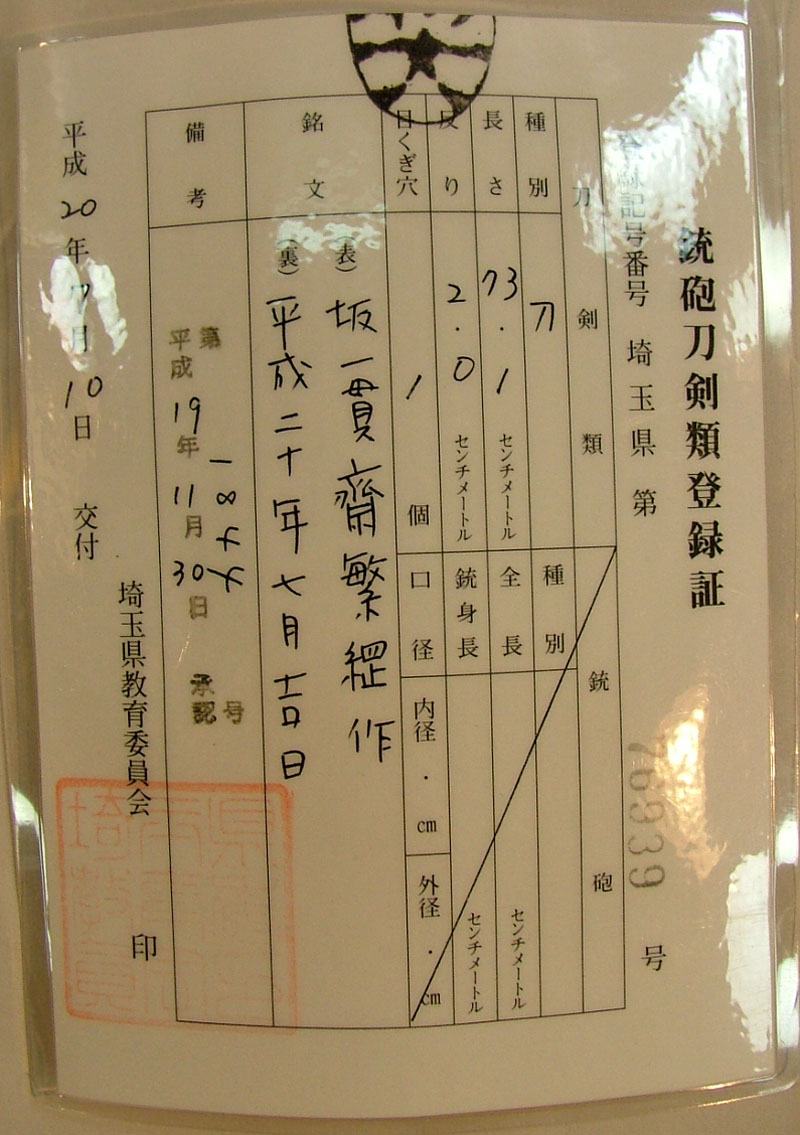 銃砲刀剣類登録証
登録記号番号 埼玉県 第 76939 号
刀剣類
種別 刀
長さ 73.1 センチメートル
反り 2.0 センチメートル
目くぎ穴 1 個
銃砲
種別
全長 センチメートル
銃身長 センチメートル
口径 内径 . cm 外径 . cm
銘文
(表) 坂一貫齋繁継作
(裏) 平成二十年七月吉日
備考
第 一8 号
平成19年11月30日 承認
平成20年7月10日 交付
埼玉県教育委員会 印